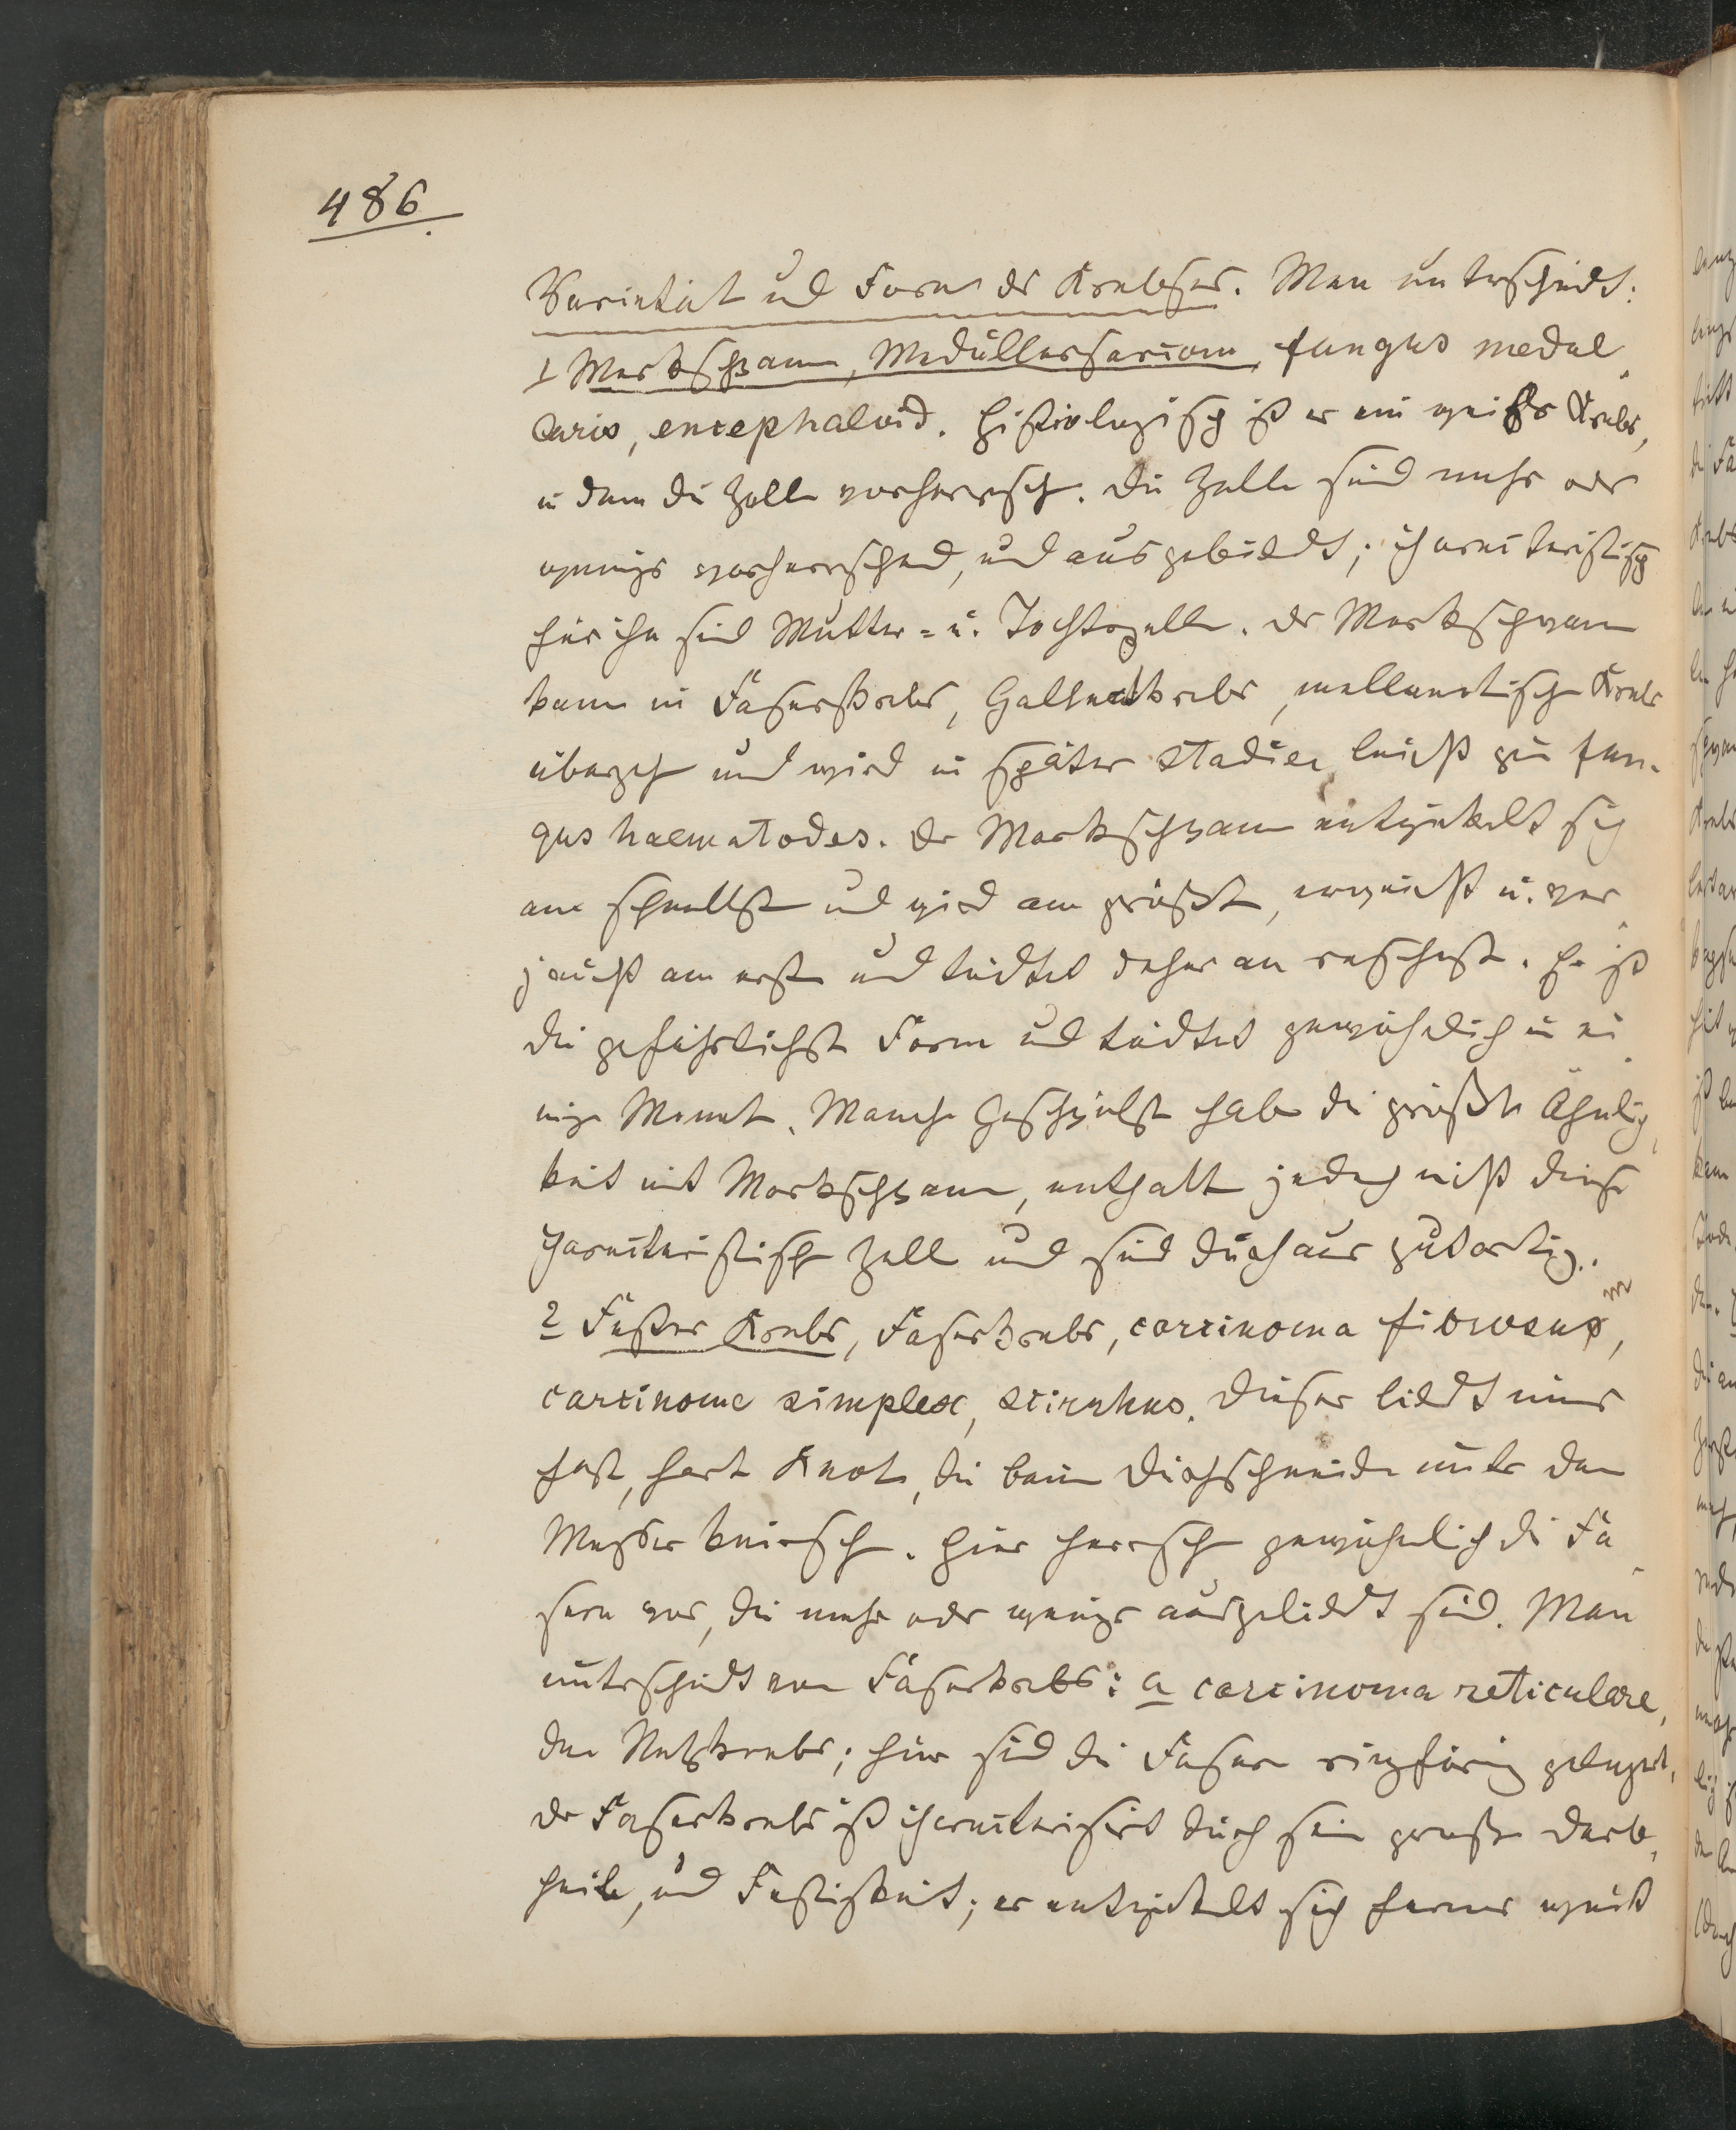 486.
Varietät und Form der Krebses. Man unterscheidt:
1 Markschwam, Medullarsarcom, fungus medul
laris, encephaloid. Histiologisch ist er ein weicher Krebs,
in dem die Zelle vorherrsch. Die Zelle sind mehr oder
weniger vorherrschend, und ausgebildet; characteristisch
für ihn sind Mutter- u. Tochterzelle. Der Markschwam
kann in Faserkrebs, Gallertkrebs, mellanotische Krebs
übergeh und wird in später Stadien leicht zu fun-
gus haematodes. Der Markschwam entwickelt sich
am schnellst und wird am größt, erweicht u. ver
jaucht am erste und tödtet daher am raschest. Er ist
die gefährlichst Form und tödtet gewöhnlich in ei
nige Monat. Manche Geschwülst habe die größte Ähnlich
keit mit Markschwam, enthalt jedoch nicht diese
characteristische Zell und sind durchaus gutartig.
2 Faser Krebs, Faserkrebs, carcinoma fibrosum,
carcinoma simplex, scirrhus. Dieser bildt immer
fest, hart Knote, die beim Durchschneide unter dem
Messer knirsch. Hier herrsch gewöhnlich die Fa
sern vor, die mehr oder weniger ausgebildt sind. Man
unterscheidt vom Faserkrebs: a carcinoma reticulare,
den Netzkrebs; hier sind die Fasern ringförmig gelagert,
der Faserkrebs ist characterisirt durch sein große Derb
heit, und Festigkeit; er entwickelt sich ferner meist